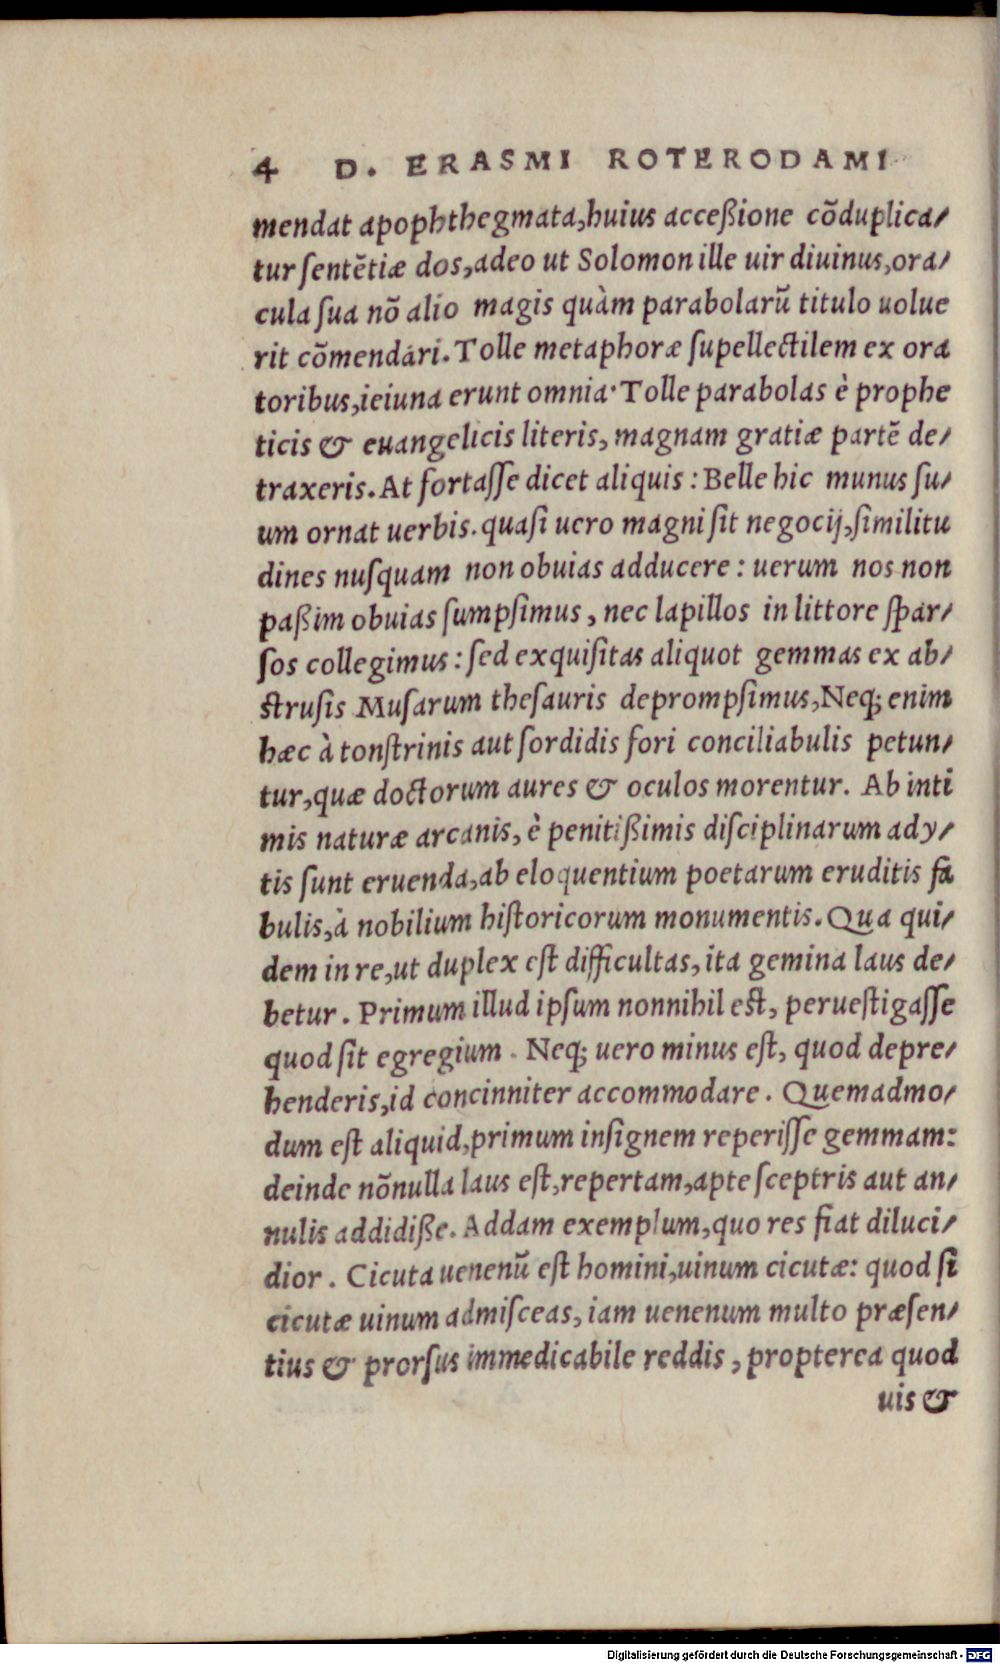 4 D. ERASMI ROTERODAMI
mendat apophthegmata,huius acceßione cōduplica/
tur ſentētiæ dos,adeo ut Solomon ille uir diuinus,ora/
cula ſua nō alio magis quàm parabolarū titulo uolue
rit cōmendari. Tolle metaphoræ ſupellectilem ex ora
toribus,ieiuna erunt omnia· Tolle parabolas è prophe
ticis & euangelicis literis, magnam gratiæ partē de/
traxeris. At fortaſſe dicet aliquis : Belle hic munus ſu/
um ornat uerbis. quaſi uero magni ſit negocij,ſimilitu
dines nuſquam non obuias adducere : uerum nos non
paßim obuias ſumpſimus , nec lapillos in littore ſpar/
ſos collegimus : ſed exquiſitas aliquot gemmas ex ab/
ſtruſis Muſarum theſauris deprompſimus, Neq; enim
hæc à tonſtrinis aut ſordidis fori conciliabulis petun/
tur,quæ doctorum aures & oculos morentur. Ab inti
mis naturæ arcanis, è penitißimis diſciplinarum ady/
tis ſunt eruenda,ab eloquentium poetarum eruditis fa
bulis,à nobilium hiſtoricorum monumentis. Qua qui/
dem in re,ut duplex eſt difficultas, ita gemina laus de/
betur . Primum illud ipſum nonnihil eſt, perueſtigaſſe
quod ſit egregium . Neq; uero minus eſt, quod depre/
henderis,id concinniter accommodare . Quemadmo/
dum eſt aliquid,primum inſignem reperiſſe gemmam:
deinde nōnulla laus eſt,repertam,apte ſceptris aut an/
nulis addidiße. Addam exemplum,quo res fiat diluci/
dior . Cicuta uenenū eſt homini,uinum cicutæ: quod ſi
cicutæ uinum admiſceas, iam uenenum multo præſen/
tius & prorſus immedicabile reddis , propterea quod
uis &
Digitalisierung gefördert durch die Deutsche Forschungsgemeinschaft - DFG